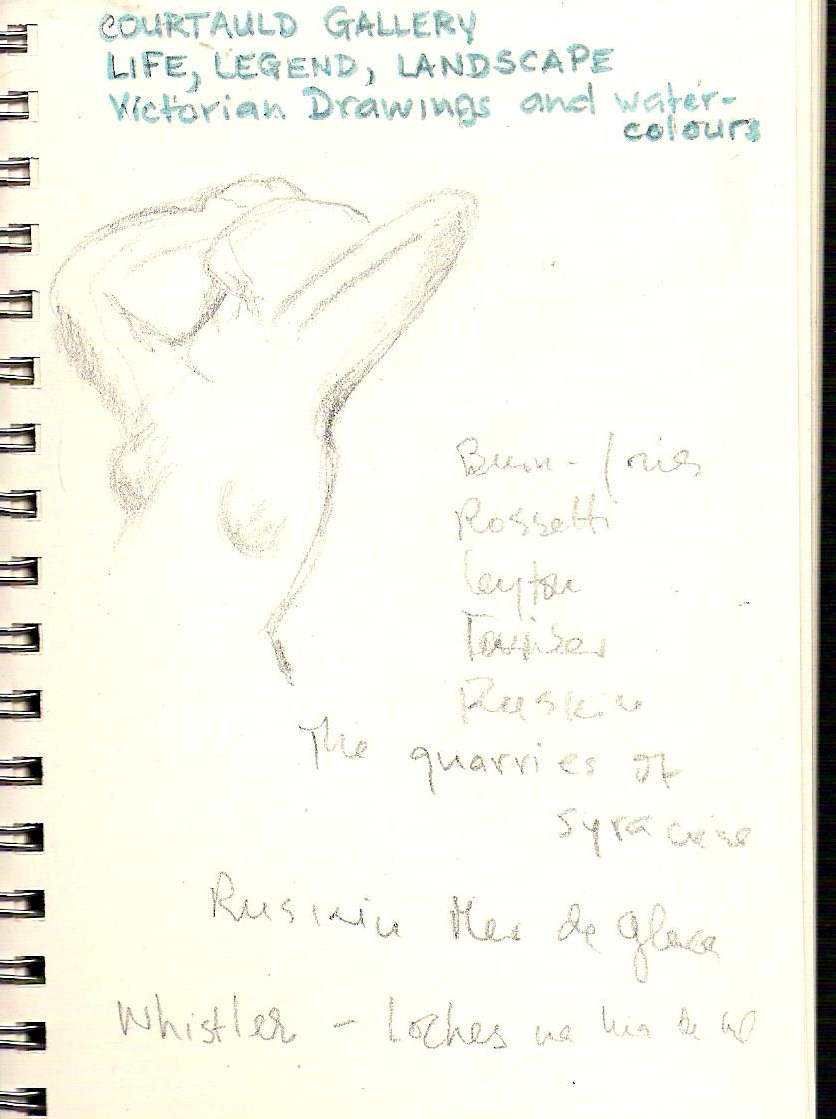 COURTAULD GALLERY
LIFE, LEGEND, LANDSCAPE
Victorian Drawings and water-
colours
Burn-Jones
Rossetti
Leyton
Ruskin
The quarries of
Syracuse
Ruskin Mer de glace
Whistler - Loches